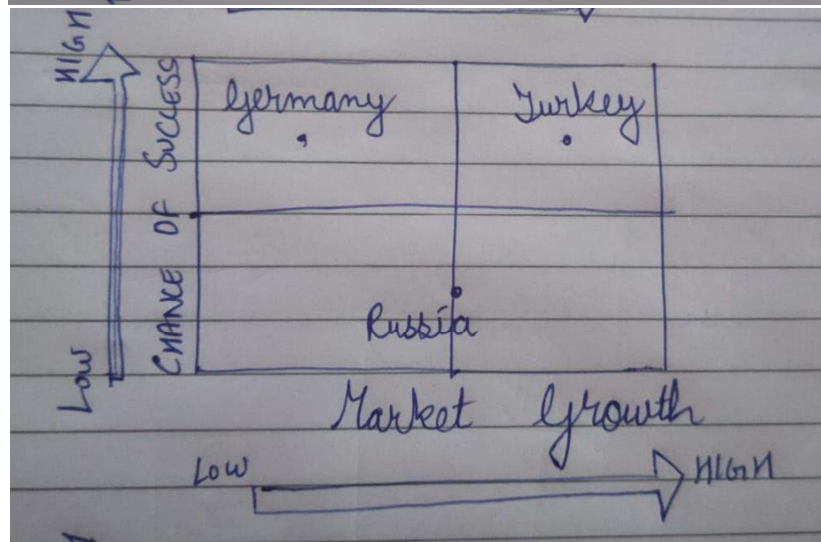 HIGH
CHANCE OF SUCCESS
Germany
Turkey
Russia
Low
Market Growth
LOW
HIGH